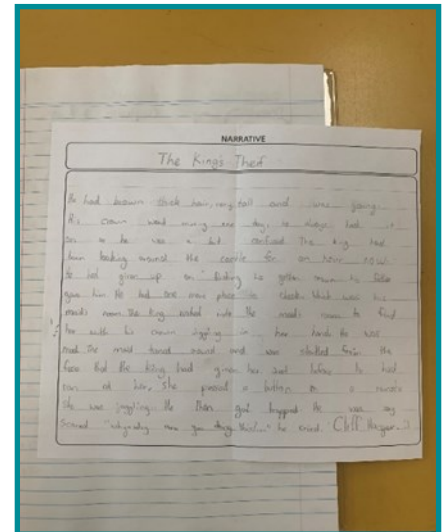 NARRATIVE
The King's Theif
He had brown thick hair, very tall and was young.
His crown went missing one day, he always had it
on so he was a bit confused. The king had
been looking around the castle for an hour now.
He had given up on finding his golden crown his father
gave him. He had one more place to check. Which was his
maids room. The king walked into the maids room to find
her with his crown in her hands he was
mad. The maid turned around and was startled from the
face that the king had given her. Just before he had
ran at her, she pressed a button on a
she was juggling. He then got trapped. He was very
scared "why are you doing this!..." he cried. Cliff Hanger..:)